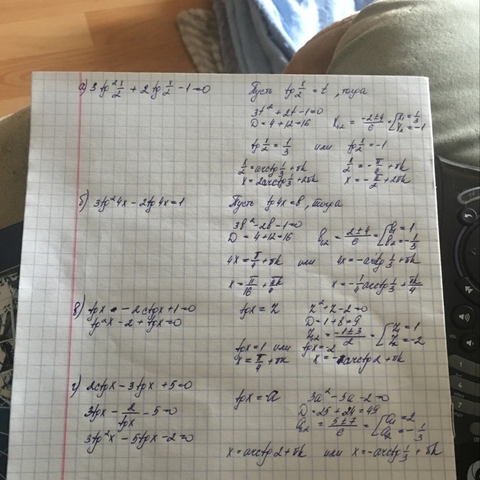 а) 3 tg² x/2 + 2 tg x/2 - 1 = 0 Пусть tg x/2 = t, тогда
3t² + 2t - 1 = 0
D = 4 + 12 = 16 t₁,₂ = (-2±4)/6 = [t₁ = 1/3 t₂ = -1
tg x/2 = 1/3 или tg x/2 = -1
x/2 = arctg 1/3 + πk x/2 = -π/4 + πk
x = 2arctg 1/3 + 2πk x = -π/2 + 2πk
б) 3tg²4x - 2tg4x = 1 Пусть tg4x = b, тогда
3b² - 2b - 1 = 0
D = 4 + 12 = 16 b₁,₂ = (2±4)/6 = [b₁ = 1 b₂ = -1/3
4x = π/4 + πk или 4x = -arctg 1/3 + πk
x = π/16 + πk/4 x = -1/4 arctg 1/3 + πk/4
в) tgx - 2ctgx + 1 = 0 tgx = z z² + z - 2 = 0
tg²x - 2 + tgx = 0 D = 1 + 8 = 9
z₁,₂ = (-1±3)/2 = [z₁ = 1 z₂ = -2
tgx = 1 или tgx = -2
x = π/4 + πk x = -arctg2 + πk
г) 2ctgx - 3tgx + 5 = 0 tgx = a 3a² - 5a - 2 = 0
3tgx - 2/tgx - 5 = 0 D = 25 + 24 = 49
a₁,₂ = (5±7)/6 = [a₁ = 2 a₂ = -1/3
3tg²x - 5tgx - 2 = 0
x = arctg2 + πk или x = -arctg 1/3 + πk